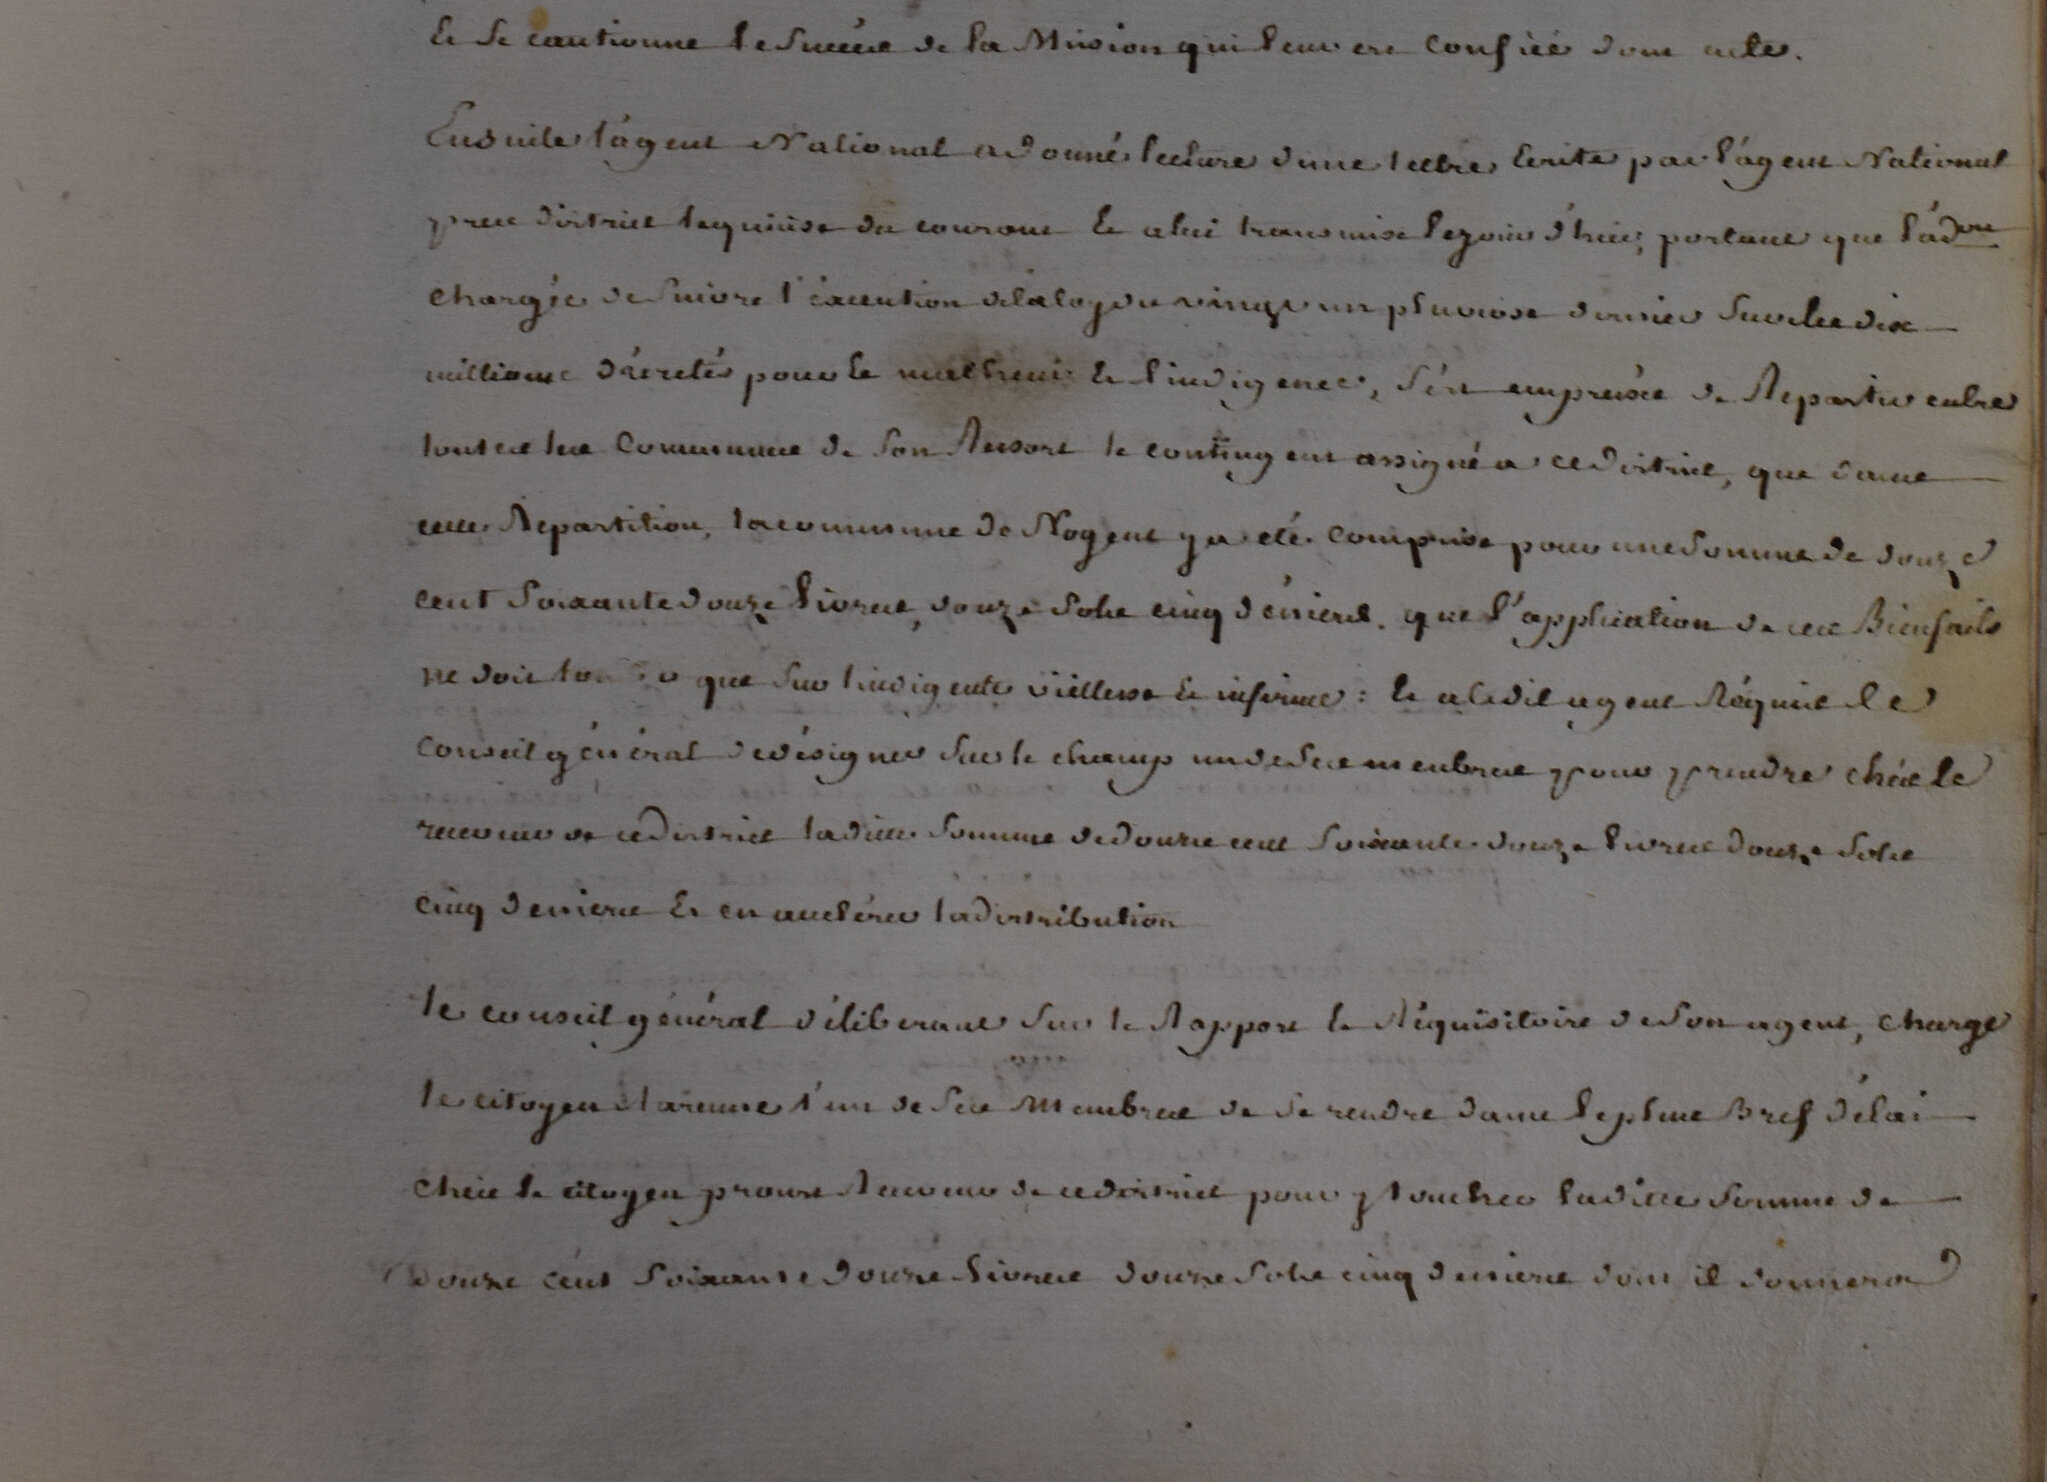 et se cautionne le succès de la Mission qui leur est confiée dont acte.
Ensuite l'agent National a donné lecture d'une lettre Ecrite par l'agent National
pres ce district le quinze du courant et a lui transmise le jour d'hier, portant que l'ad.on
chargée de suivre l'éxécution de la loy du vingt un pluviose dernier sur les dix
millions décretés pour le malheur et l'indigence, s'est empressée de Repartir entre
toutes les Communes de son Ressort le contingent assigné a ce district, que dans
cette Repartition, la commune de Nogent y a eté comprise pour une somme de douze
cent soixante douze livres, douze sols cinq déniers. que l'application de ces Bienfaits
ne doit tomber que sur l'indigente viellesse et infirme : et a ledit agent Réquis le
Conseil général de désigner sur le champ un de ses membres pour prendre chés le
receveur de ce District la ditte somme de douze cent soixante douze livres douze sols
cinq deniers et en accélérer la distribution
le conseil général déliberant sur le Rapport et Réquisitoire de son agent, charge
le citoyen l'un de ses Membres de se rendre dans le plus Bref délai
chés le citoyen Receveur de ce district pour y toucher la ditte somme de
douze cent soixante douze livres douze sols cinq deniers dont il donnera